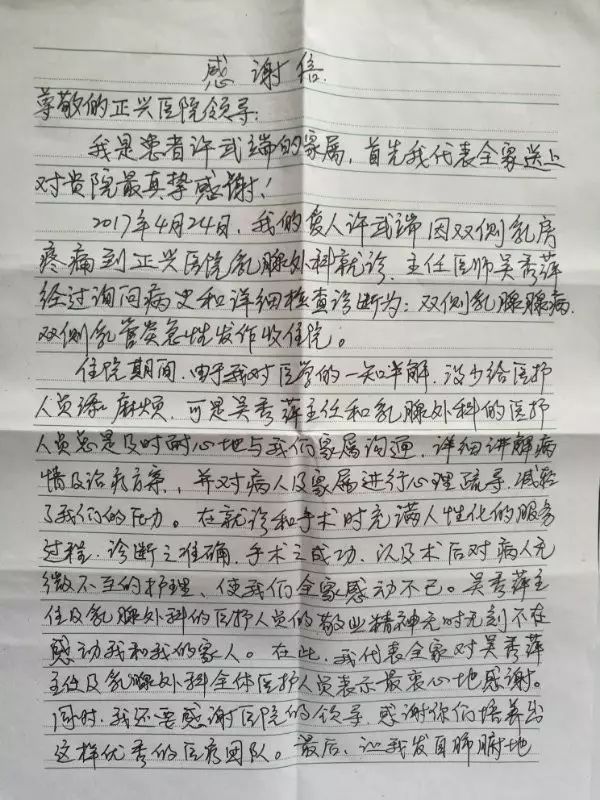 感谢信
尊敬的正兴医院领导:
我是患者许武端的家属,首先我代表全家送上
对贵院最真挚感谢!
2017年4月24日,我的爱人许武端因双侧乳房
疼痛到正兴医院乳腺外科就诊.主任医师吴秀萍
经过询问病史和详细检查诊断为:双侧乳腺腺病.
双侧乳管炎急性发作收住院。
住院期间.由于我对医学的一知半解.没少给医护
人员添麻烦.可是吴秀萍主任和乳腺外科的医护
人员总是及时耐心地与我们家属沟通.详细讲解病
情及治疗方案,并对病人及家属进行心理疏导.减轻
了我们的压力。在就诊和手术时充满人性化的服务
过程.诊断之准确.手术之成功.以及术后对病人无
微不至的护理、使我们全家感动不已。吴秀萍主
任及乳腺外科的医护人员的敬业精神无时无刻不在
感动我和我的家人。在此.我代表全家对吴秀萍
主任及乳腺外科全体医护人员表示最衷心地感谢。
同时.我还要感谢医院的领导.感谢你们培养出
这样优秀的医疗团队。最后、让我发自肺腑地